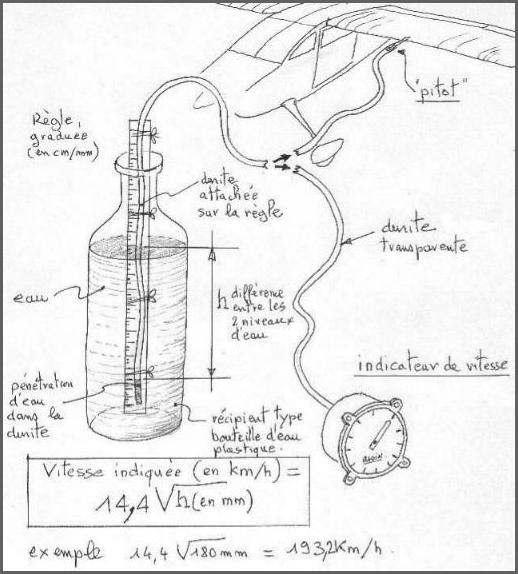 "pitot"
Règle,
graduée
(en cm/mm)
durite
attachée
sur la règle
durite
transparente
eau
h
différence
entre les
2 niveaux
d'eau
indicateur de vitesse
pénétration
d'eau
dans la
durite
récipient type
bouteille d'eau
plastique.
Vitesse indiquée (en km/h) =
14,4 √h(en mm)
exemple 14,4 √180mm = 193,2Km/h.